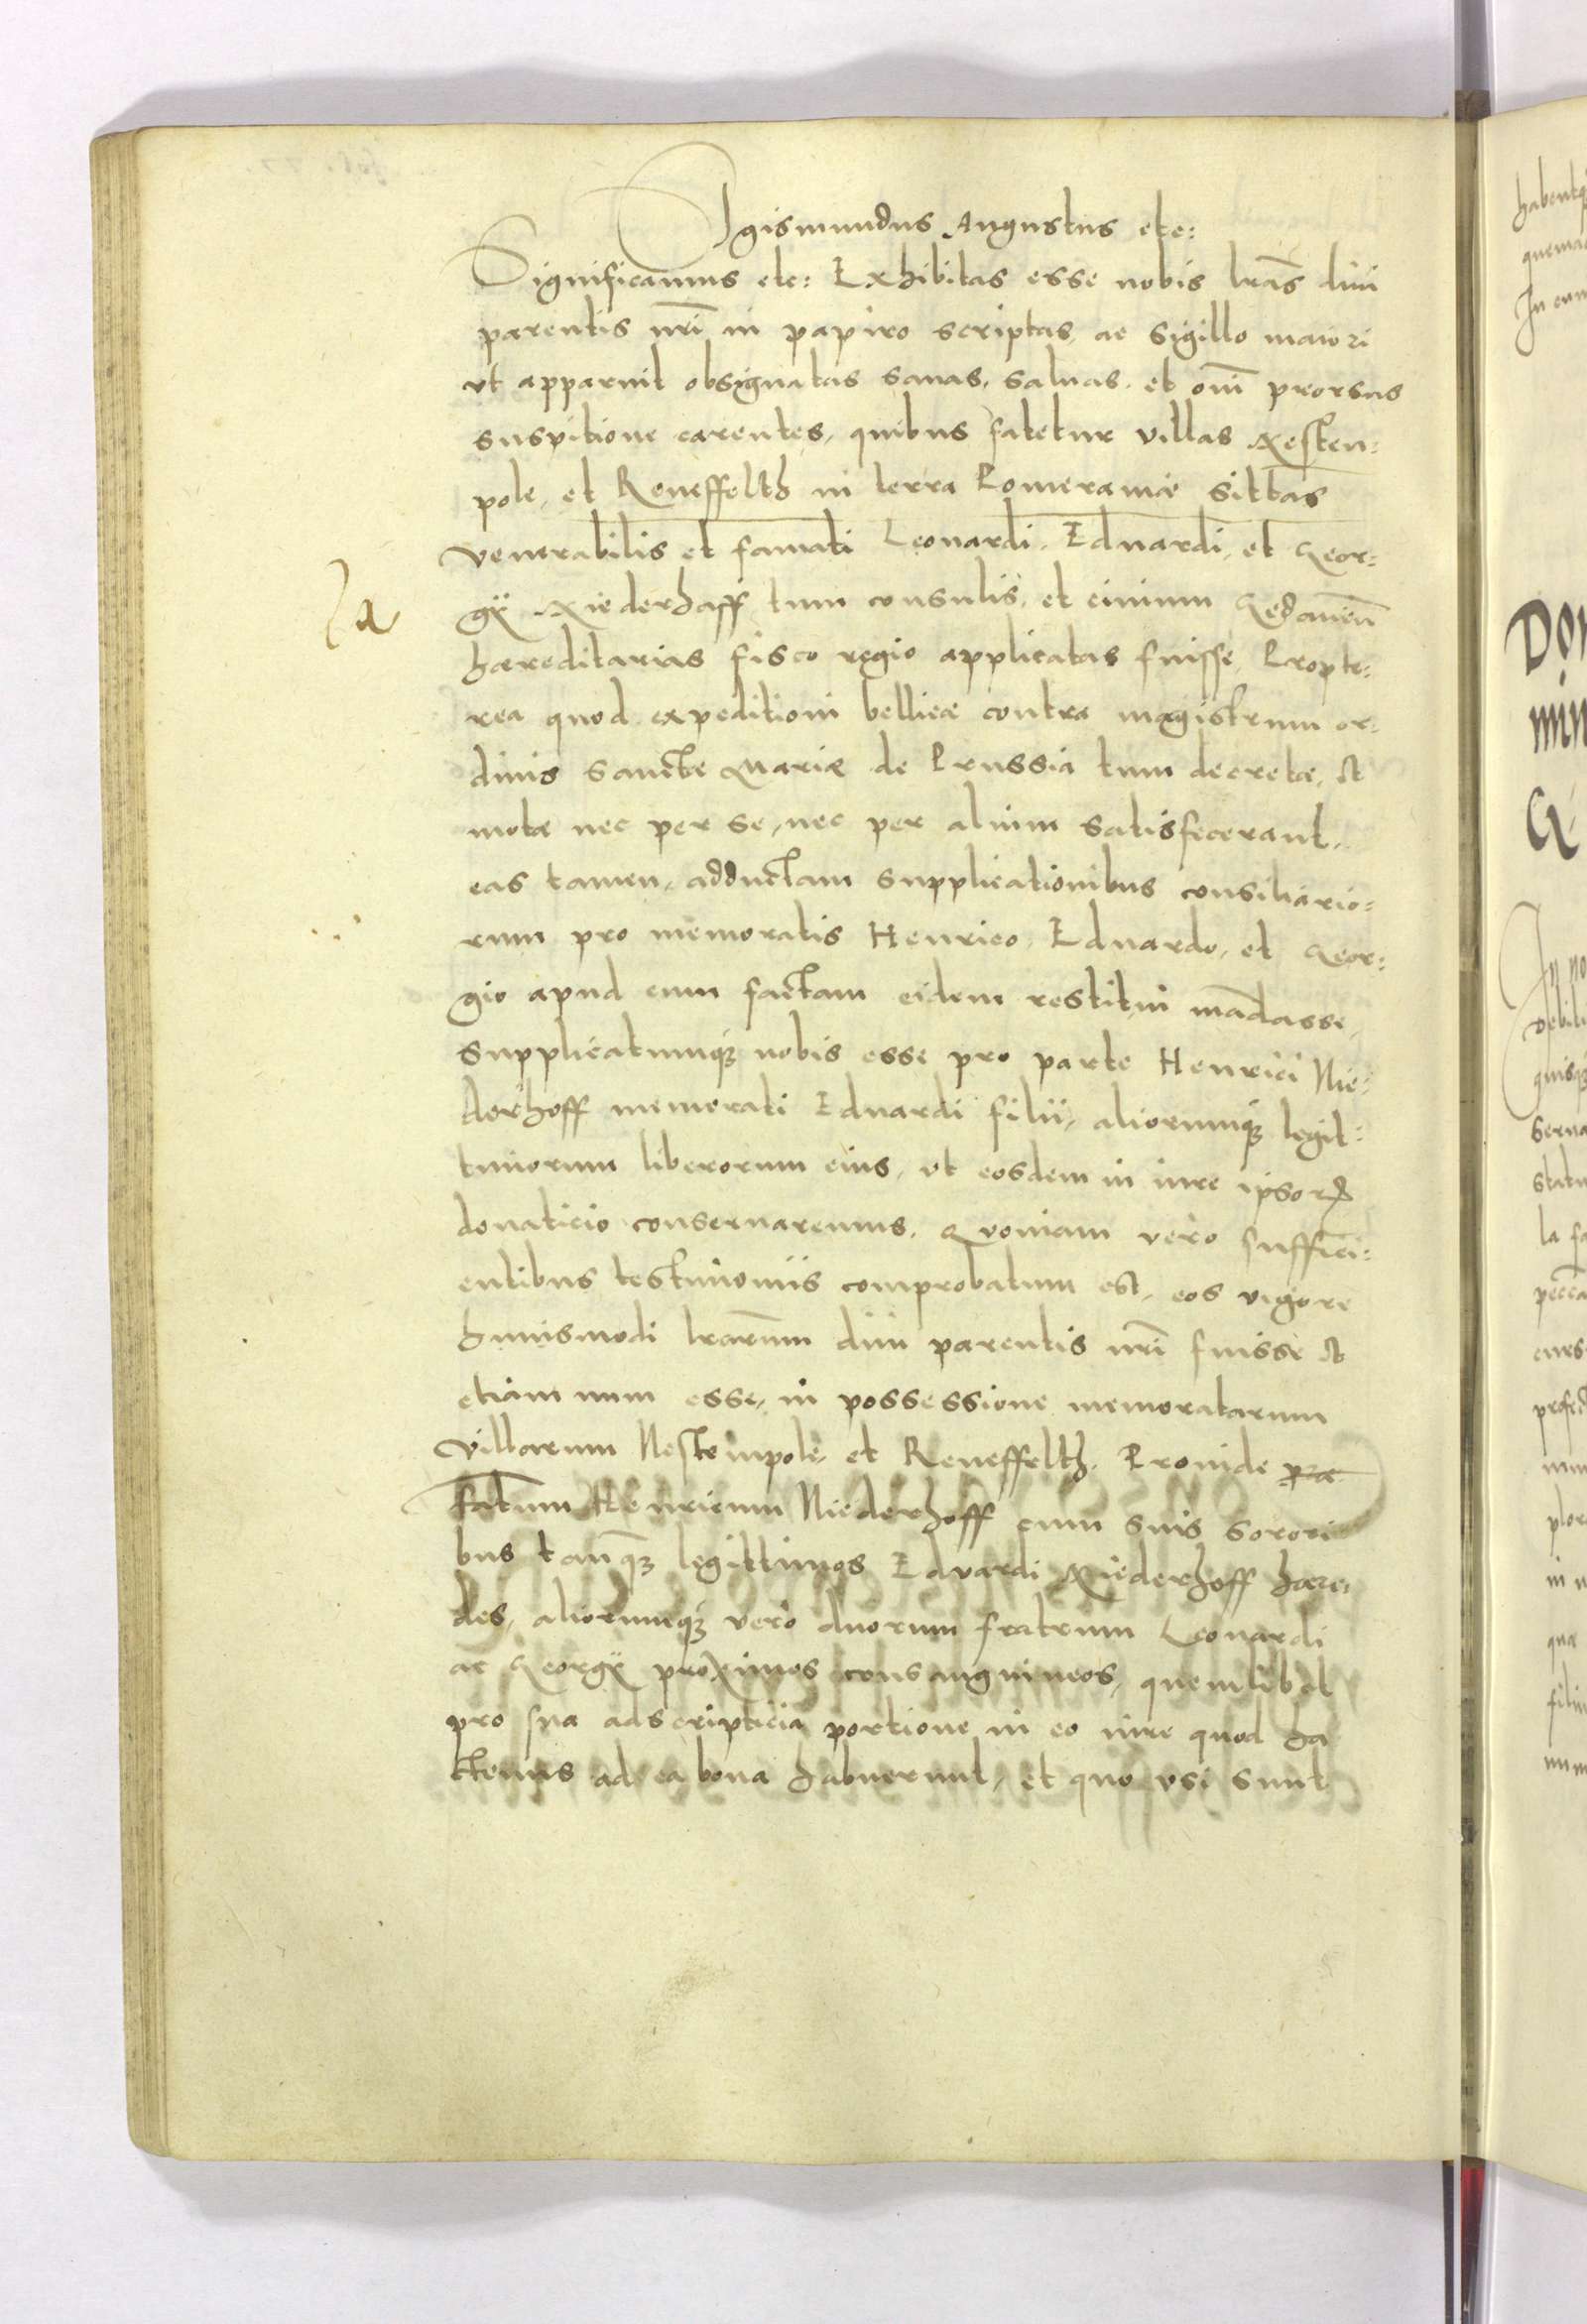 Sigismundus Augustus etc:
Significamus etc: Exhibitas esse nobis lrãs diui
parentis nrĩ in papiro scriptas ac sigillo maiori
vt apparuit obsignatas sanas, saluas, et oñi prorsus
suspitione carentes, quibus fatetur villas Nesten=
pole, et Reneffelth in terra Pomeraniæ sittas
venerabilis et famati Leonardi, Eduardi, et Geor=
gÿ Niederhaff tum consulis, et ciuium Gedanen̄
hæreditarias fisco regio applicatas fuisse, Propte=
rea quod expeditioni bellicæ contra magistrum or=
dinis Sanctæ Mariæ de Prussia tum decretæ, et
motæ nec per se, nec per alium satisfecerant,
eas tamen, adductam supplicationibus consiliario=
rum pro memoratis Henrico, Eduardo, et Geor=
gio apud eum factam eidem restitui mãdasse,
Supplicatumq₃ nobis esse pro parte Henrici Nie=
derhoff memorati Eduardi filii, aliorumq₃ legit=
timorum liberorum eius, vt eosdem in iure ipsoꝝ
donaticio conseruaremus. Quoniam vero suffici=
entibus testimoniis comprobatum est, eos vigore
huiusmodi lrarũm diui parentis nrĩ fuisse et
etiam num esse, in possessione memoratarum
villarum Nestempole, et Reneffelth. Proinde præ
fatum Henricum Niederhoff cum suis sorori
bus tanq̃₃ legittimos Eduardi Niederhoff hære=
des, aliorumq₃ vero duorum fratrum Leonardi
ac Georgÿ proximos consanguineos, quemlibet
pro sua adscripticia portione in eo iure quod ha
ctenus ad ea bona habuerunt, et quo vsi sunt